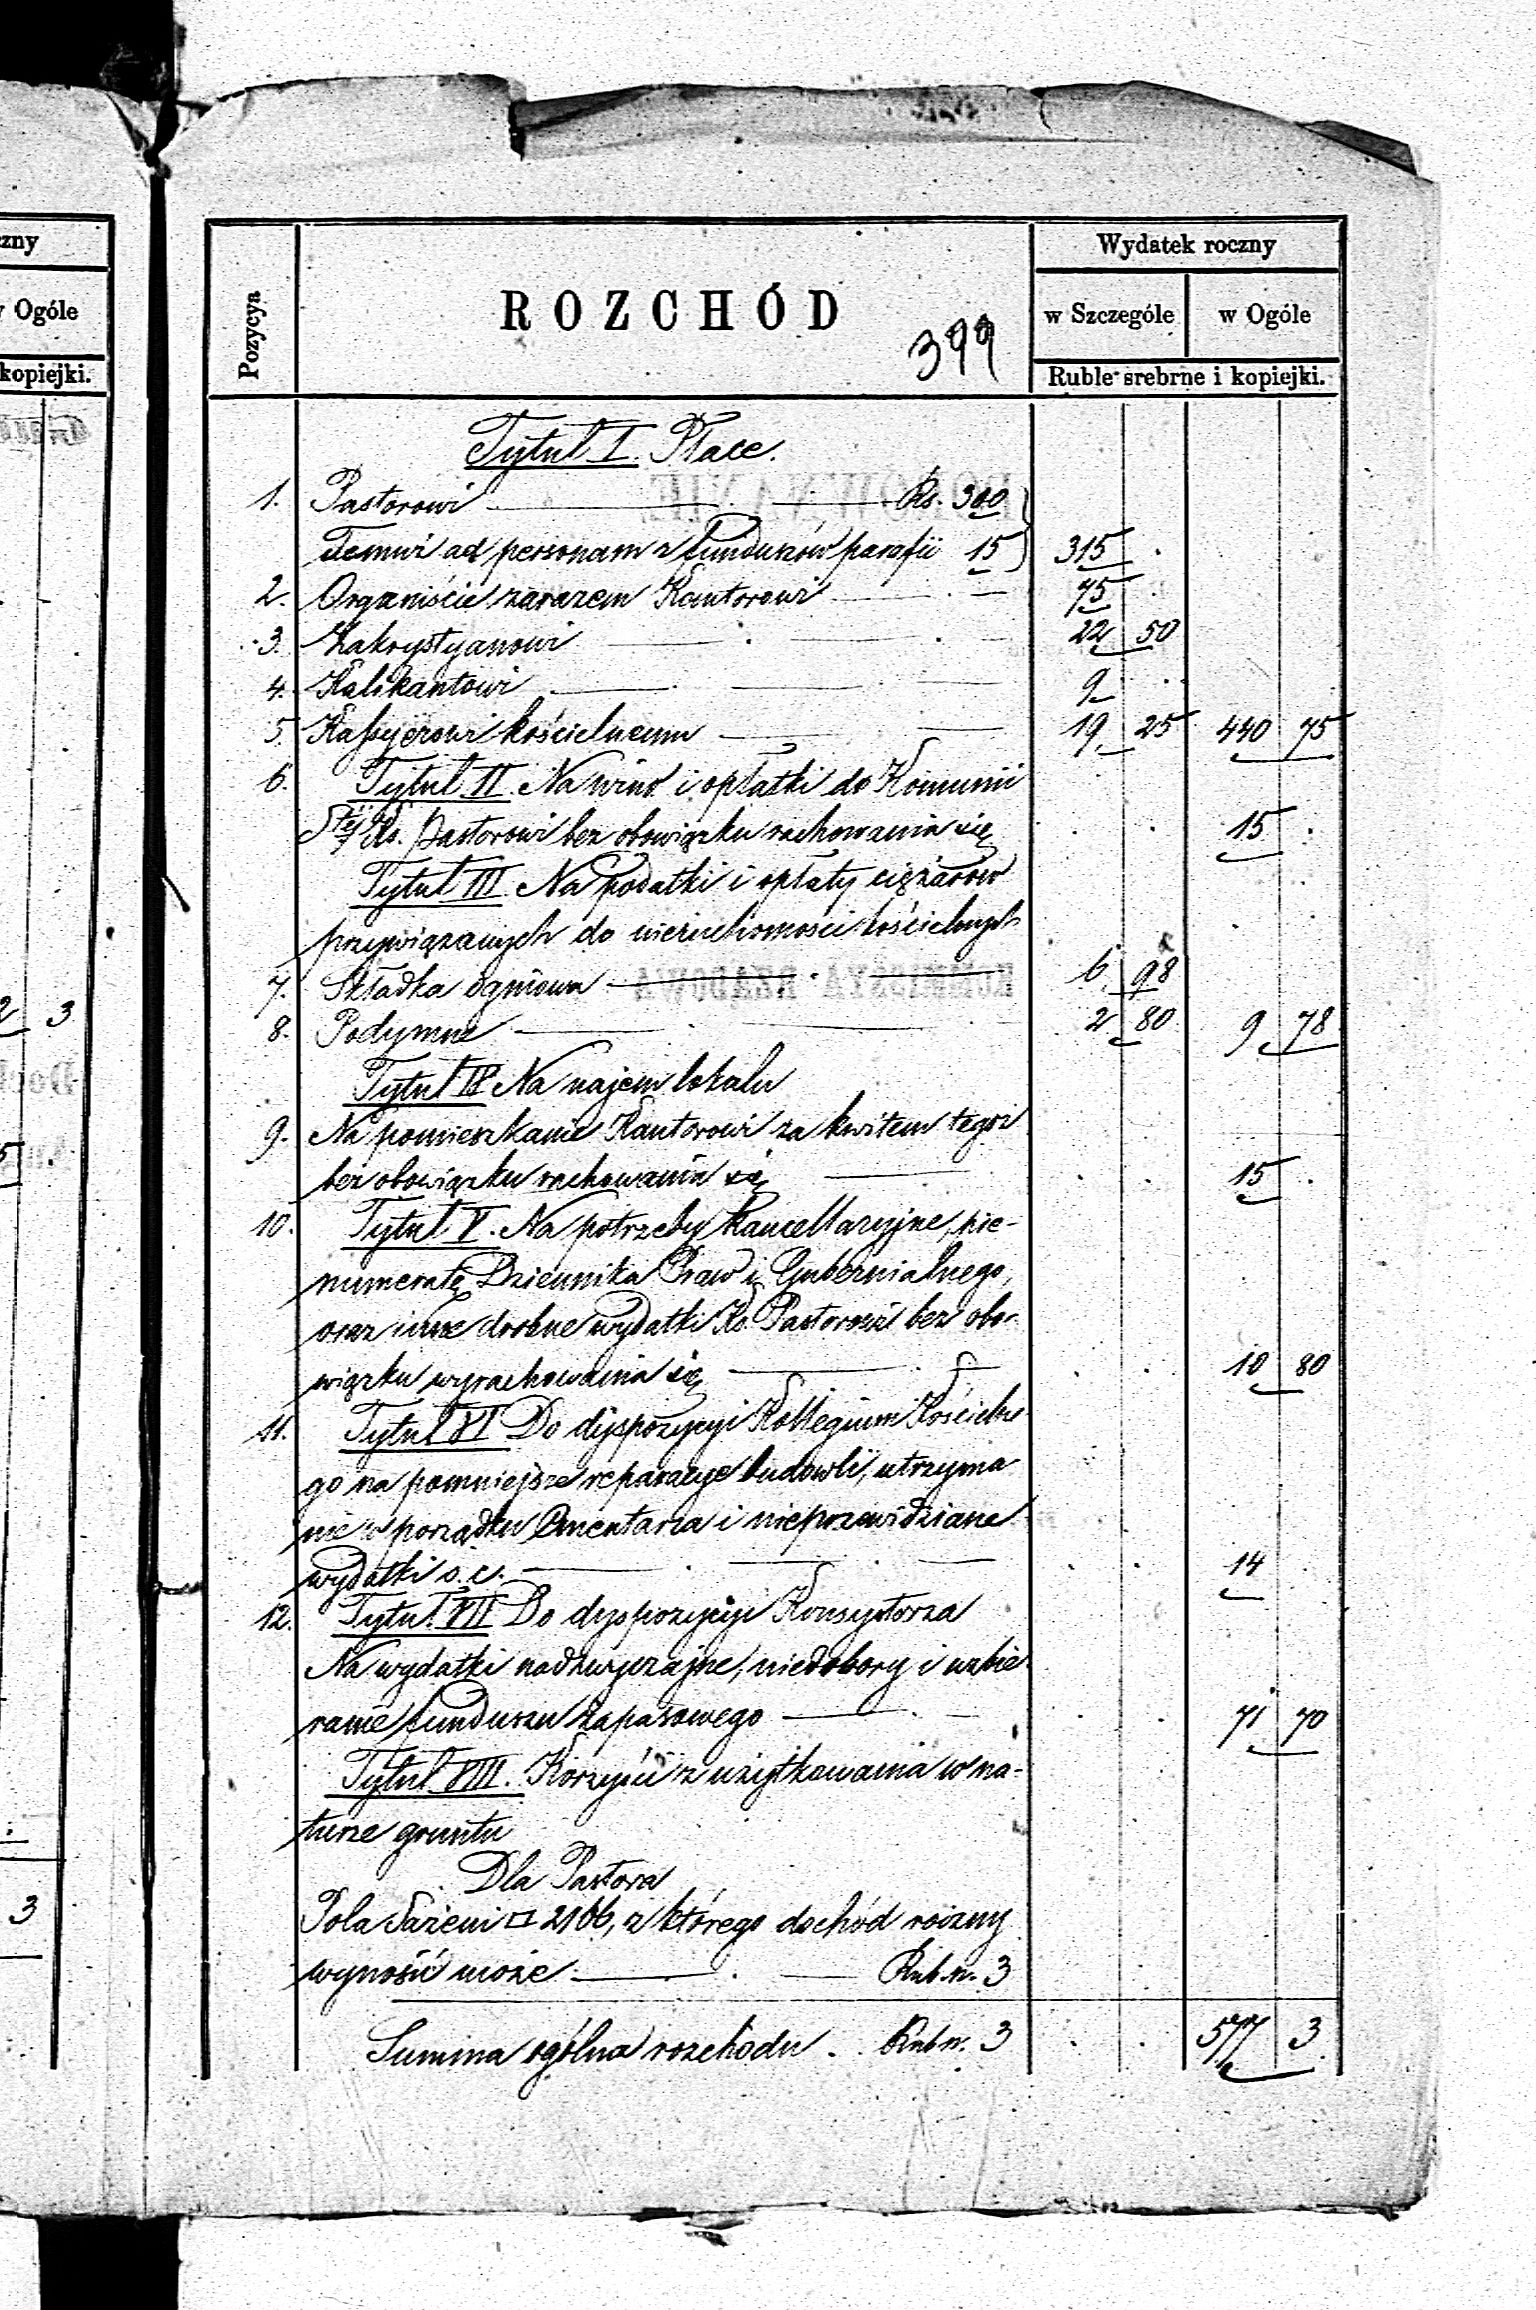 zny
w Ogóle
kopiejki.
2 3
5 .
3
Pozycya
ROZCHÓD
399
Wydatek roczny
w Szczególe w Ogóle
Ruble srebrne i kopiejki.
Tytuł I. Płace.
1. Pastorowi Rs. 300
Temuż ad personam z funduszów parafii 15 315 .
2. Organiście zarazem Kantorowi 75 .
3. Zakrystyanowi 22 50
4. Kalikantowi 9 .
5. Kassyerowi kościelnemu 19 25 440 75
6. Tytuł II. Na wino i opłatki do Komunii
Stej Ks. Pastorowi bez obowiązku rachowania się . . 15 .
Tytuł III. Na podatki i opłaty ciężarów
przywiązanych do nieruchomości kościelnych
7. Składka ogniowa 6 98
8. Podymne 2 80 9 78
Tytuł IV Na najem lokalu
9. Na pomieszkanie Kantorowi za kwitem tegoż
bez obowiązku rachowania się . . 15 .
10. Tytuł V. Na potrzeby kancellaryjne, pre-
numeratę Dziennika Praw i Gubernialnego,
oraz inne drobne wydatki Ks. Pastorowi bez obo-
wiązku wyrachowania się . . 10 80
11. Tytuł VI Do dyspozycyi Kollegium Kościelne
go na pomniejsze reparacye budowli, utrzyma
nie w porządku Cmentarza i nieprzewidziane
wydatki s. c. . . 14 .
12. Tytuł VII Do dyspozycyi Konsystorza
Na wydatki nadzwyczajne, niedobory i uzbie
ranie funduszu zapasowego . . 71 70
Tytuł VIII. Korzyści z użytkowania w na-
turze gruntu
Dla Pastora
Pola Sążeni □ 2166, z którego dochód roczny
wynosić może Rub. n. 3
Summa ogólna rozchodu . . Rub n. 3 . . 577 3